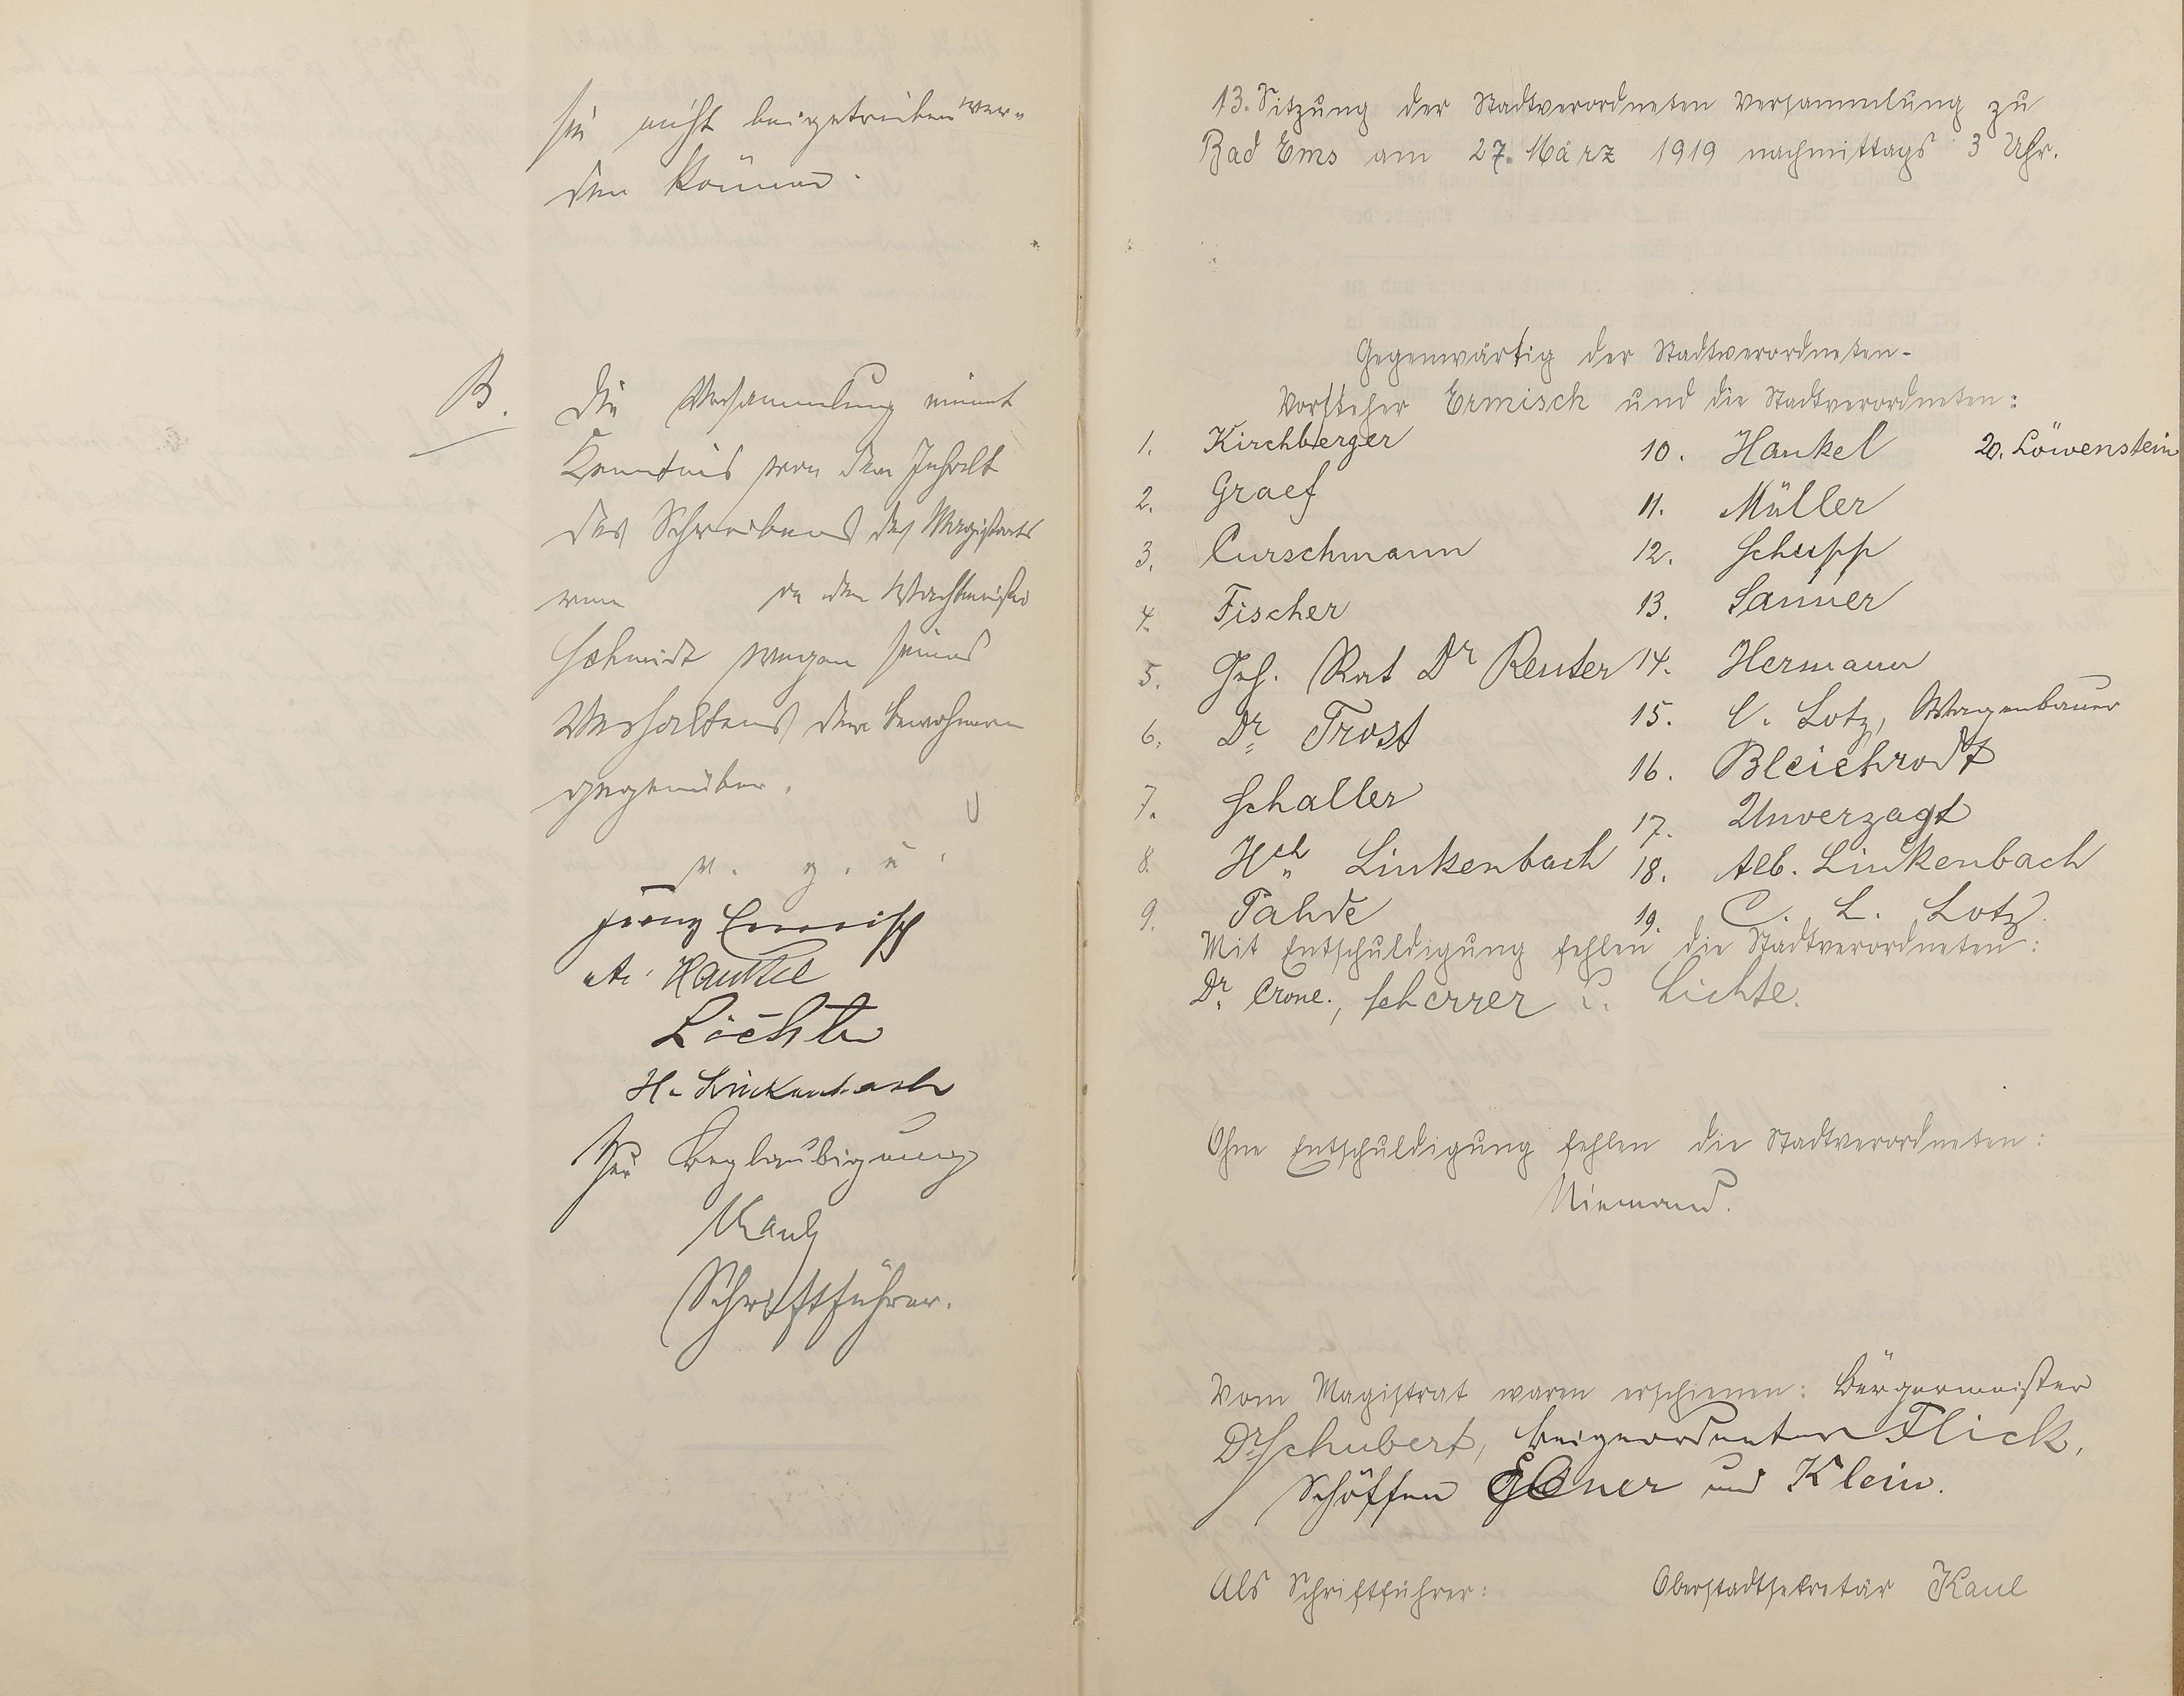 sie nicht beigetrieben wer-
den können.
B.
Die Versammlung nimmt
Kenntnis von dem Inhalt
des Schreibens des Magistrats
vom an den Wachtmeister
Schmidt wegen seines
Verhaltens den Bewohnern
gegenüber.
v. g. u.
Franz Ermisch
A. Hankel
H. Linkenbach
Zur Beglaubigung
Kaul
Schriftführer.
13. Sitzung der Stadtverordneten Versammlung zu
Bad Ems am 27. März 1919 nachmittags 3 Uhr.
Gegenwärtig der Stadtverordneten-
Vorsteher Ermisch und die Stadtverordneten:
1. Kirchberger
2. Graef
3. Curschmann
4. Fischer
5. Geh. Rat Dr Reuter
6. Dr Trost
7. Schaller
8. Hch Linkenbach
9. Pahde
10. Hankel
11. Müller
12. Schupp
13. Sanner
14. Hermann
15. C. Lotz, Wagenbauer
16. Bleichrodt
17. Unverzagt
18. Alb. Linkenbach
19. C. L. Lotz.
20. Löwenstein
Mit Entschuldigung fehlen die Stadtverordneten:
Dr. Crone., Scherrer u. Lichte.
Ohne Entschuldigung fehlen die Stadtverordneten:
Niemand.
Vom Magistrat waren erschienen: Bürgermeister
Dr Schubert, Beigeordneter Flick,
Schöffen und Klein.
Als Schriftführer: Oberstadtsekretär Kaul